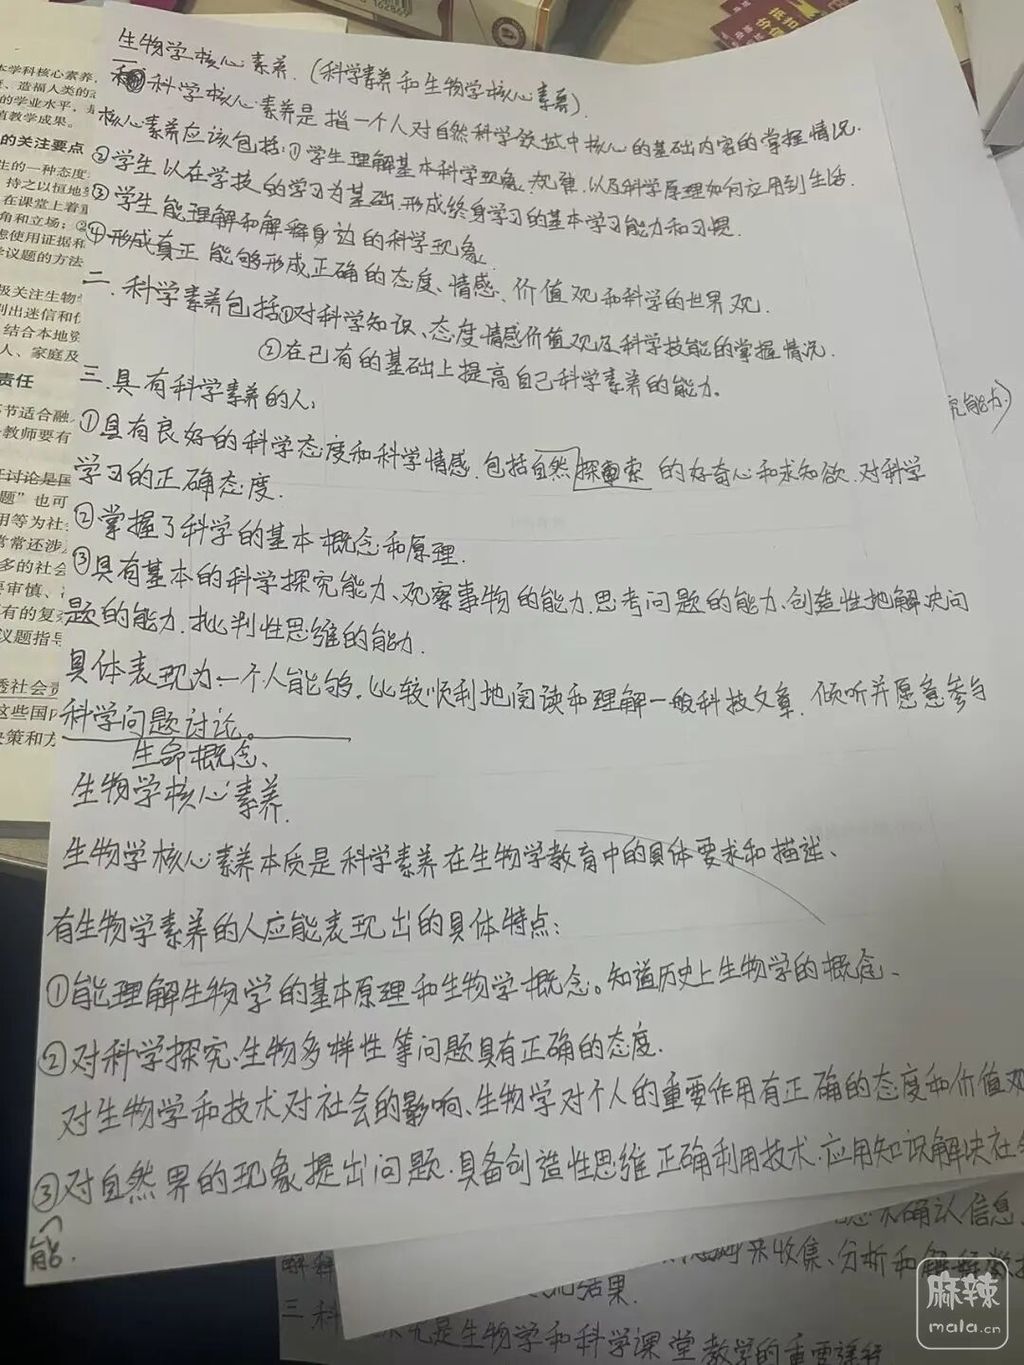 生物学核心素养.（科学素养和生物学核心素养）.
科学核心素养是指一个人对自然科学领域中核心的基础内容的掌握情况.
核心素养应该包括:①学生理解基本科学现象、规律，以及科学原理如何应用到生活.
②学生以在学校的学习为基础，形成终身学习的基本学习能力和习惯.
③学生能理解和解释身边的科学现象.
④形成真正能够形成正确的态度、情感、价值观和科学的世界观.
二.科学素养包括①对科学知识、态度情感价值观及科学技能的掌握情况.
②在已有的基础上提高自己科学素养的能力。
三.具有科学素养的人:
①具有良好的科学态度和科学情感.包括自然探索的好奇心和求知欲.对科学
学习的正确态度.
②掌握了科学的基本概念和原理.
③具有基本的科学探究能力、观察事物的能力.思考问题的能力、创造性地解决问
题的能力.批判性思维的能力.
具体表现为一个人能够.比较顺利地阅读和理解一般科技文章.倾听并愿意参与
科学问题讨论。
生命概念、
生物学核心素养.
生物学核心素养本质是科学素养在生物学教育中的具体要求和描述、
有生物学素养的人应能表现出的具体特点:
①能理解生物学的基本原理和生物学概念。知道历史上生物学的概念、
②对科学探究.生物多样性等问题具有正确的态度.
对生物学和技术对社会的影响、生物学对个人的重要作用有正确的态度和价值观
③对自然界的现象提出问题.具备创造性思维正确利用技术.应用知识解决社会
能.
究能力)
确认信息
来收集、分析和解释数据
解释
结果.
三.科
是生物学和科学课堂教学的重要
本学科核心素养
造福人类的
的学业水平，
教学成果。
的关注要点
生的一种态度
持之以恒地
在课堂上着重
角和立场；②
使用证据和
学议题的方法
极关注生物
判出迷信和伪
结合本地资
人、家庭及
责任
节适合融
教师要有
讨论是国
题”也可
用等为社会
常常还涉及
多的社会
要审慎、
有的复杂
议题指导
透社会责
这些国内
决策和方
162867
抵扣
价值
麻辣
mala.cn